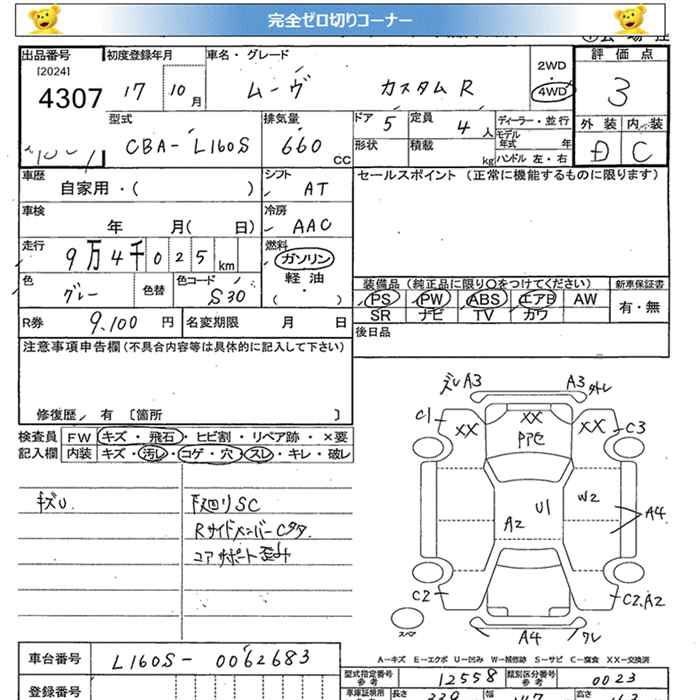 完全ゼロ切りコーナー
出品番号 初度登録年月 車名・グレード 評価点
[2024] 4307 17 10月 ムーヴ カスタムR 2WD・4WD 3
型式 排気量 ドア 5 定員 4人 ディーラー・並行 外装 内装
CBA-L160S 660 CC 形状 積載 kg モデル年式 年 ハンドル 左・右 D C
車歴 自家用・( ) シフト AT セールスポイント(正常に機能するものに限ります)
車検 年 月( 日) 冷房 AAC
走行 9万4千025km 燃料 ガソリン 軽油 ( )
色 グレー 色替 色コード S30
装備品(純正品に限り○をつけてください) 新車保証書
PS PW ABS エアB AW 有・無
SR ナビ TV カワ
R券 9,100円 名変期限 月 日 後日品
注意事項申告欄(不具合内容等は具体的に記入して下さい)
修復歴, 有 〔箇所 〕
検査員記入欄 FW キズ・飛石・ヒビ割・リペア跡・×要
内装 キズ・汚レ・コゲ・穴・スレ・キレ・破レ
キズU 下廻りSC
RサイドメンバーC多
コアサポート歪み
ズレA3 A3外レ
C1 XX XX XX C3
アアセ
U1 W2 A2 A4
C2 C2,A2
スペア A4 ワレ
A-キズ E-エクボ U-凹み W-補修跡 S-サビ C-腐食 XX-交換済
車台番号 L160S-0062683
型式指定番号 参考 12558 類別区分番号 参考 0023
登録番号 長さ 339 幅 147 高さ